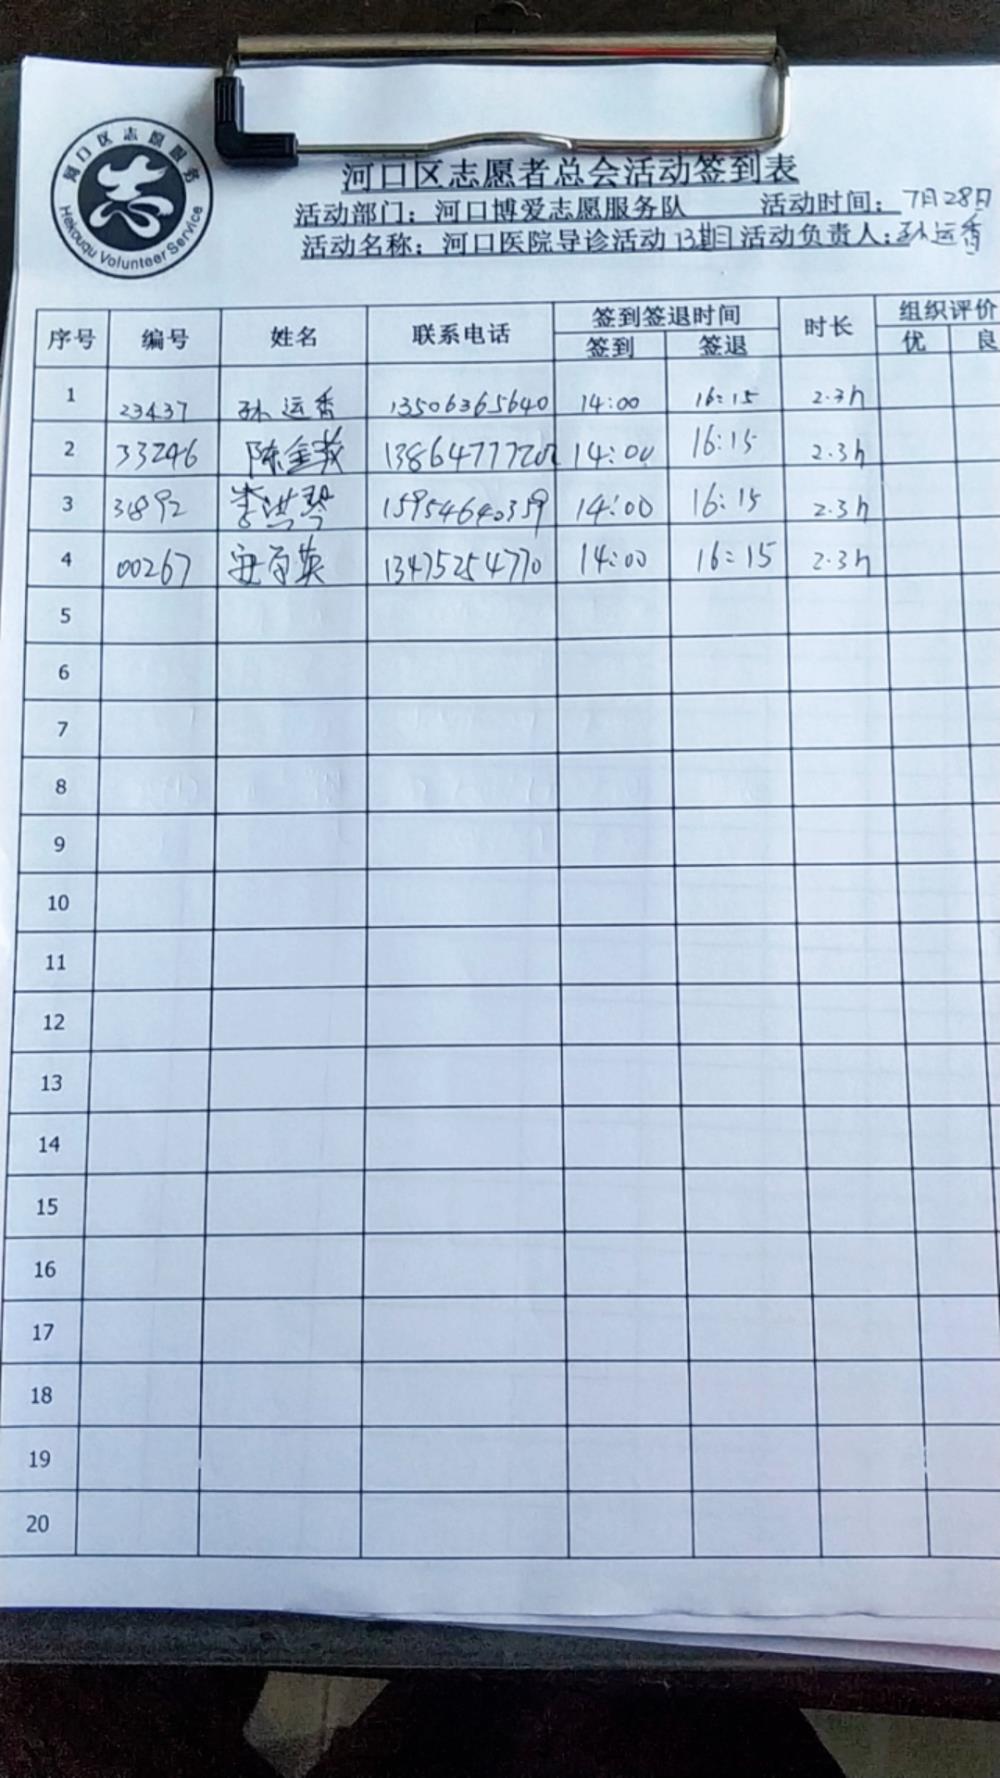 河口区志愿服务
Hekouqu Volunteer Service
河口区志愿者总会活动签到表
活动部门：河口博爱志愿服务队 活动时间：7月28日
活动名称：河口医院导诊活动13期 活动负责人：孙运香
序号 编号 姓名 联系电话 签到签退时间 时长 组织评价
签到 签退 优 良
1 23437 孙运香 13506365640 14:00 16:15 2.3h
2 33246 陈 14:00 16:15 2.3h
3 31892 李洪琴 15954640359 14:00 16:15 2.3h
4 00267 英 13475254770 14:00 16:15 2.3h
5
6
7
8
9
10
11
12
13
14
15
16
17
18
19
20